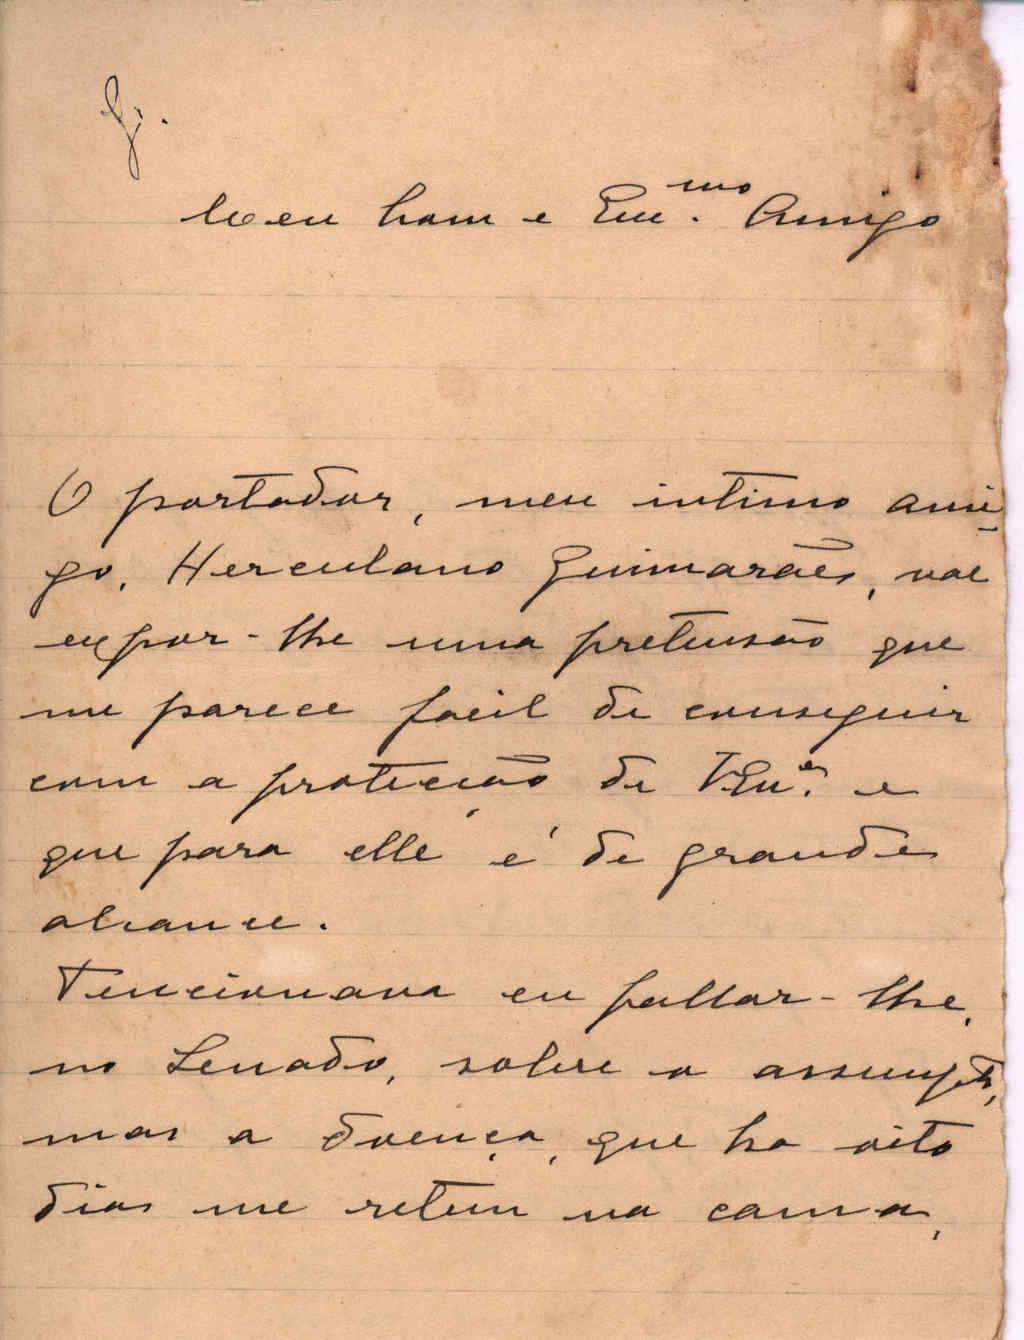 Meu bom e Exmo. Amigo
O portador, meu intimo ami-
go, Herculano Guimarães, vae
expor-lhe uma pretensão que
me parece facil de conseguir
com a protecção de V. Exa. e
que para elle é de grande
alcance.
Tencionava eu fallar-lhe,
no Senado, sobre o assumpto,
mas a doença, que ha oito
dias me retem na cama,